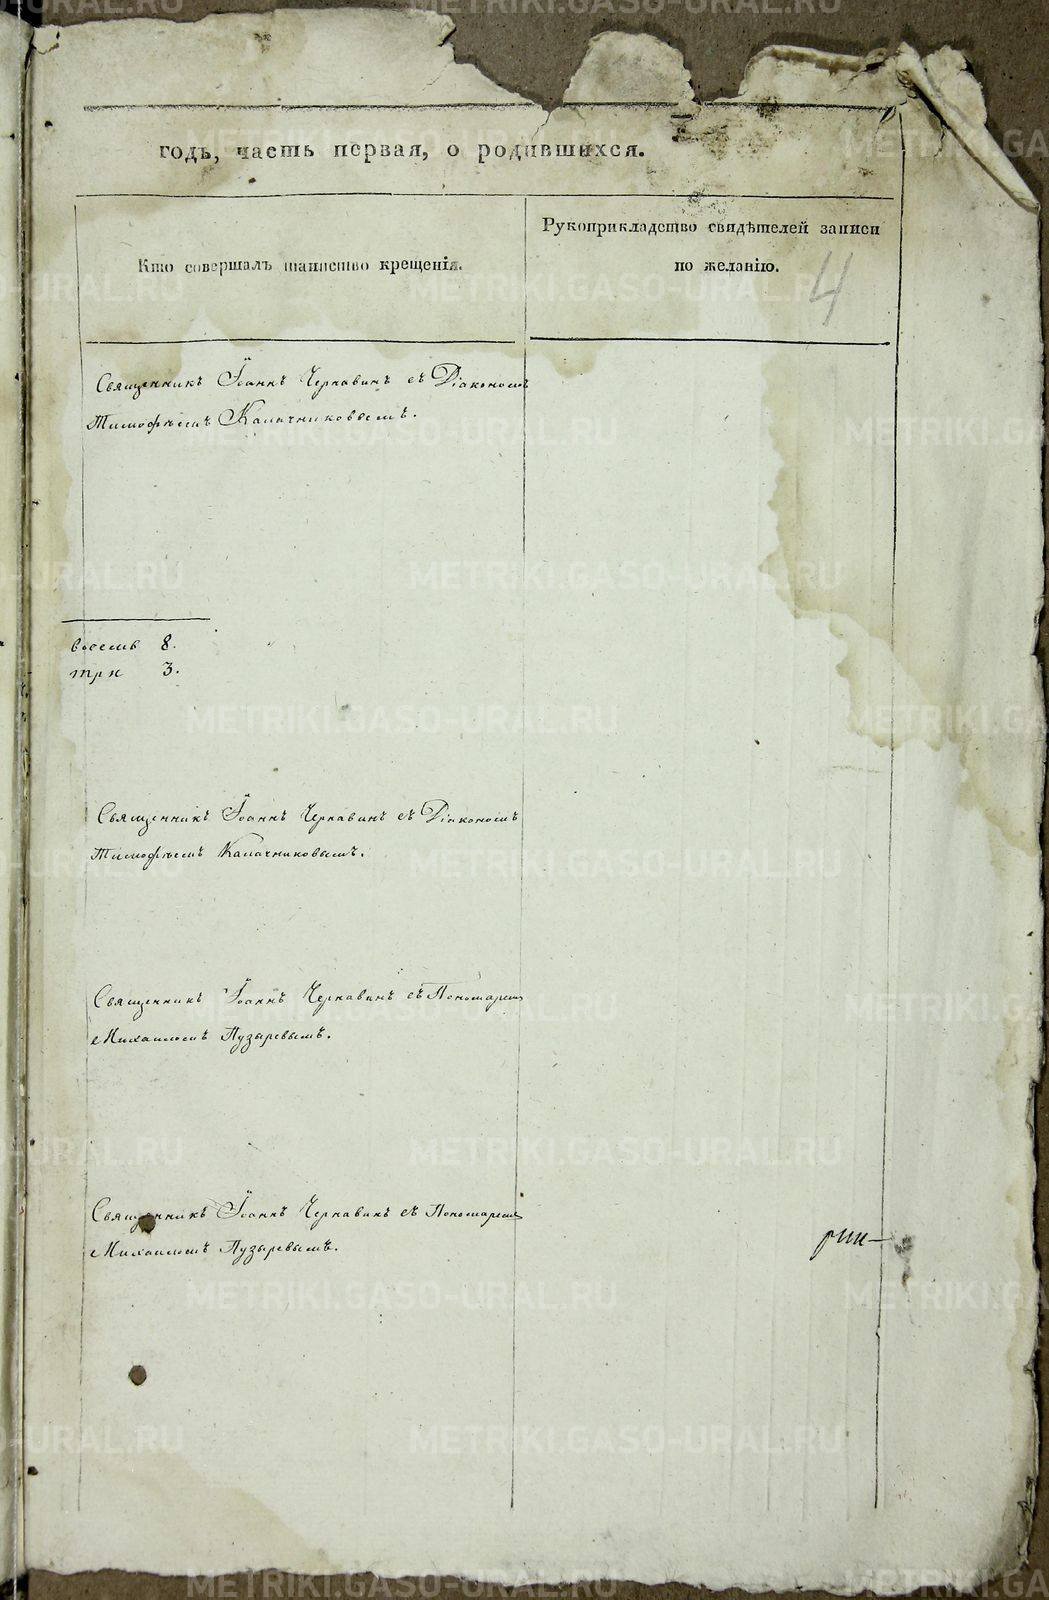 годъ, часть первая, о родившихся.
Кто совершалъ таинство крещенія.
Рукоприкладство свидѣтелей записи
по желанію.
4
Священникъ Іоаннъ Чернавинъ съ Діакономъ
Тимофѣемъ Калачниковымъ.
восемь 8.
три 3.
Священникъ Іоаннъ Чернавинъ съ Діакономъ
Тимофѣемъ Калачниковымъ.
Священникъ Іоаннъ Чернавинъ съ Пономаремъ
Михаиломъ Пузыревымъ.
Священникъ Іоаннъ Чернавинъ съ Пономаремъ
Михаиломъ Пузыревымъ.
METRIKI.GASO-URAL.RU